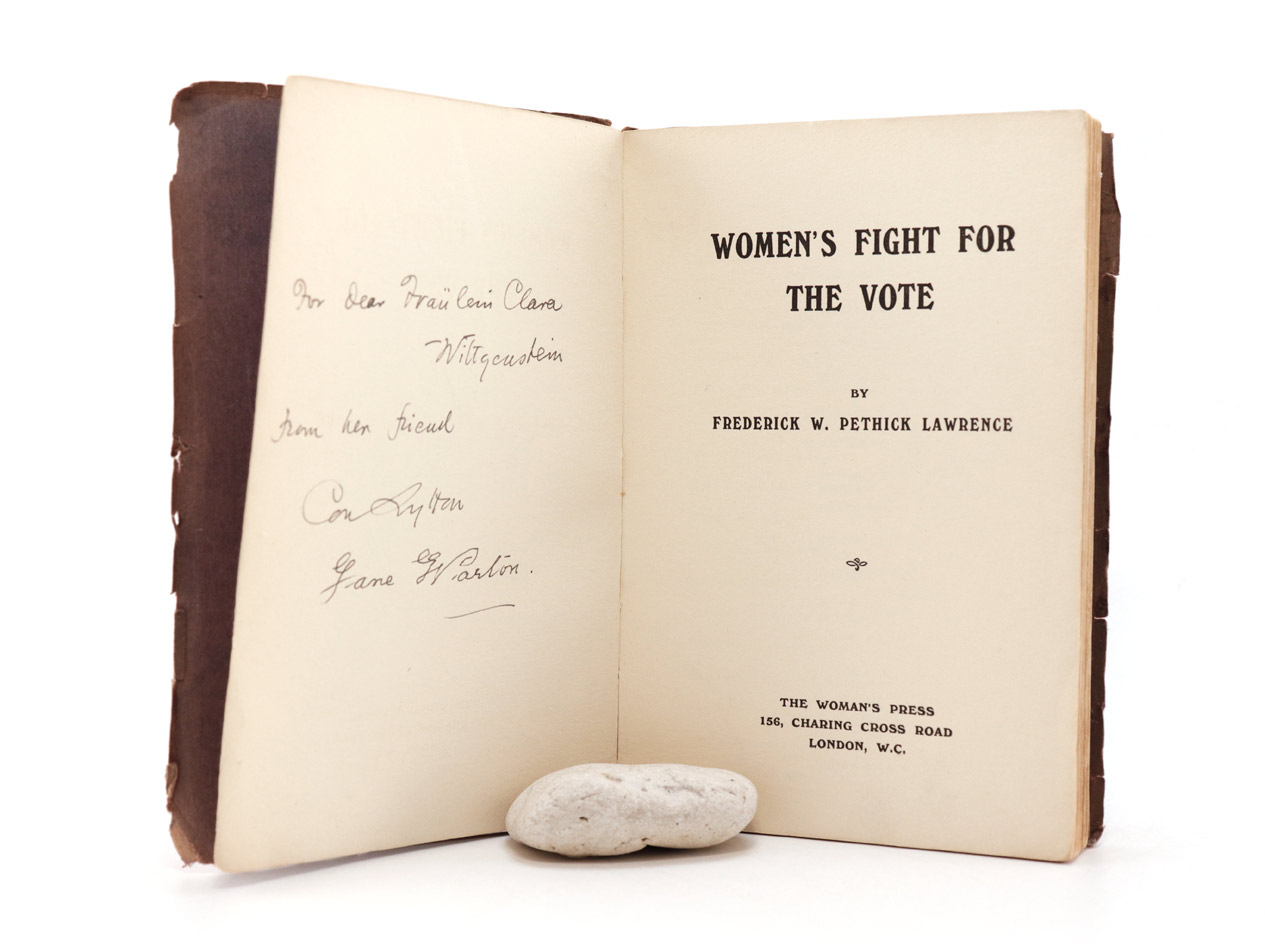 For dear Fräulein Clara
Wittgenstein
from her friend
Con Lytton
Jane Warton.
WOMEN'S FIGHT FOR
THE VOTE
BY
FREDERICK W. PETHICK LAWRENCE
THE WOMAN'S PRESS
156, CHARING CROSS ROAD
LONDON, W.C.